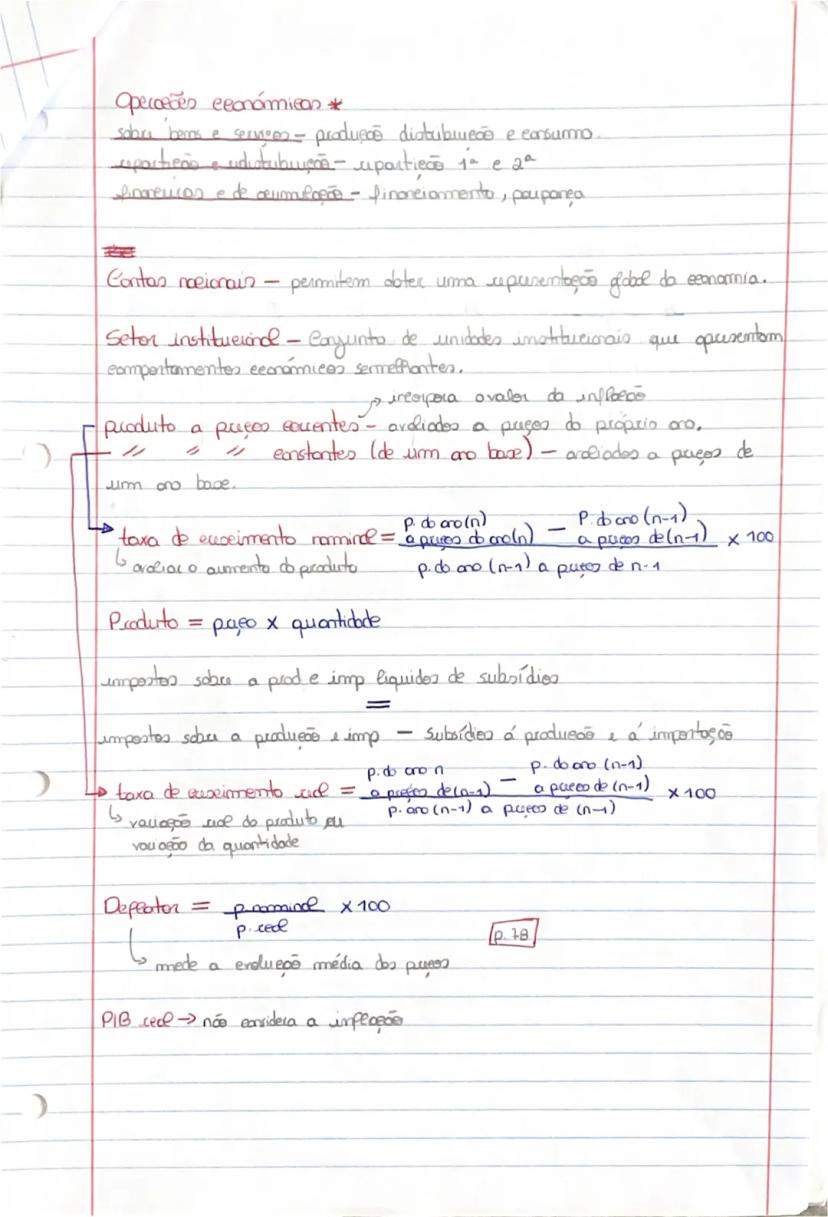 Operações económicas *
sobre bens e serviços – produção distribuição e consumo.
repartição e redistribuição – repartição 1ª e 2ª
financeiras e de acumulação – financiamento, poupança
Contas nacionais – permitem obter uma representação global da economia.
Setor institucional – Conjunto de unidades institucionais que apresentam
comportamentos económicos semelhantes.
→ incorpora o valor da inflação
produto a preços correntes – avaliados a preços do próprio ano.
〃 〃 〃 constantes (de um ano base) – avaliados a preços de
um ano base.
P. do ano (n) P. do ano (n-1)
taxa de crescimento nominal = a preços do ano(n) – a preços de (n-1) x 100
↳ avaliar o aumento do produto p. do ano (n-1) a preços de n-1
Produto = preço x quantidade
impostos sobre a prod e imp líquidos de subsídios
=
impostos sobre a produção e imp – subsídios á produção e á importação
p. do ano n p. do ano (n-1)
taxa de crescimento real = a preços de (n-1) – a preços de (n-1) x 100
↳ variação real do produto ou p. ano (n-1) a preços de (n-1)
variação da quantidade
Deflator = p. nominal x 100
p. real
p. 78
↳ mede a evolução média dos preços
PIB real → não considera a inflação